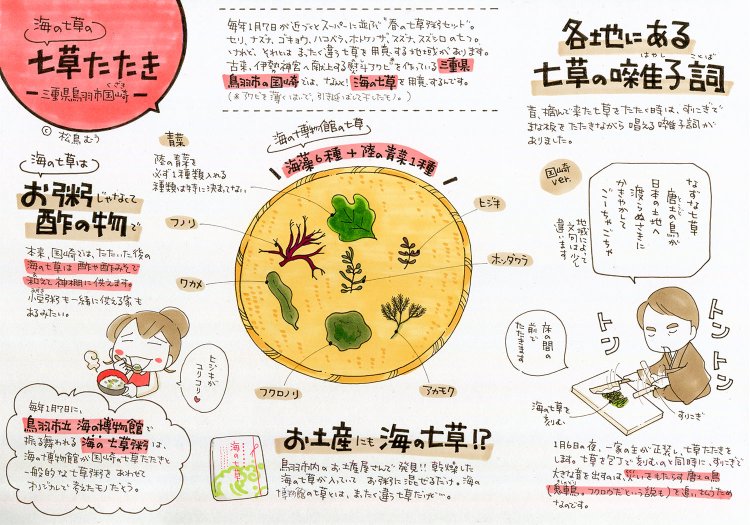 海の七草の
七草たたき
くざき
ー三重県鳥羽市国崎ー
© 松鳥むう
毎年1月7日が近づくとスーパーに並ぶ"春の七草粥セット"。
セリ、ナズナ、ゴギョウ、ハコベラ、ホトケノザ、スズナ、スズシロの七つ。
けれど、それとは まったく違う七草を用意する地域があります。
古来、伊勢神宮へ献上する熨斗アワビ*を作っている三重県
鳥羽市の国崎では、なんと! 海の七草を用意するんです。
(*アワビを薄くはいで、引き延ばして干したモノ。)
各地にある
はやし ことば
七草の囃子詞
昔、摘んで来た七草をたたく時は、すりこぎで
まな板をたたきながら 唱える囃子詞が
ありました。
国崎
ver.
なずな七草
とうど
唐土の鳥が
日本の土地へ
渡らぬさきに
かきやかして
ごーちゃごちゃ
地域によって
文句は少し
違います
海の七草は
お粥じゃなくて
酢の物で
本来、国崎では、たたいた後の
海の七草は 酢や酢みそで
和えて神棚に供えます。
小豆粥も一緒に供える家も
あるみたい。
海の博物館の七草
海藻6種+陸の青菜1種
青菜
陸の青菜を
必ず1種類入れる
種類は特に決まってない
フノリ
ワカメ
フクロノリ
ヒジキ
ホンダワラ
アカモク
ヒジキが
コリコリ♥
毎年1月7日に、
鳥羽市立 海の博物館で
振る舞われる 海の七草粥は、
海の博物館が国崎の七草たたきと
一般的な七草粥をあわせて
オリジナルで考えたモノだそう。
海の七草
お土産にも 海の七草!?
鳥羽市内のお土産屋さんで発見!! 乾燥した
海の七草が入っていて お粥に混ぜるだけ。海の
博物館の七草とは、まったく違う七草だけど〜。
床の間の
前で
たたきます
トントン
トン
海の七草を
刻む
すりこぎ
1月6日の夜、一家の主が正装し、七草たたきを
します。七草を包丁で刻むのと同時に、すりこぎで
大きな音を出すのは、災いをもたらす唐土の鳥
(鬼車鳥。フクロウだという説も)を追いはらうため
なのです。